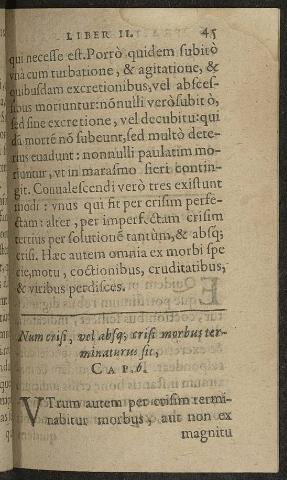 LIBER II. 45
qui necesse est. Porrò quidem subitò
vna cum turbatione, & agitatione, &
quibusdam excretionibus, vel absces-
sibus moriuntur: nõnulli verò subitò,
sed sine excretione, vel decubitu: qui
dã mortẽ nõ subeunt, sed multò dete-
rius euadunt: nonnulli paulatim mo-
riuntur, vt in marasmo fieri contin-
git. Conualescendi verò tres existunt
modi: vnus qui fit per crisim perfe-
ctam: alter, per imperfectam crisim
tertius per solutionẽ tantùm, & absq;
crisi. Hæc autem omnia ex morbi spe
cie, motu, coctionibus, cruditatibus,
& viribus perdisces.
Num crisi, vel absq; crisi morbus ter-
minaturus sit,
CAP. 6.
VTrum autem per crisim termi-
nabitur morbus, aut non ex
magnitu